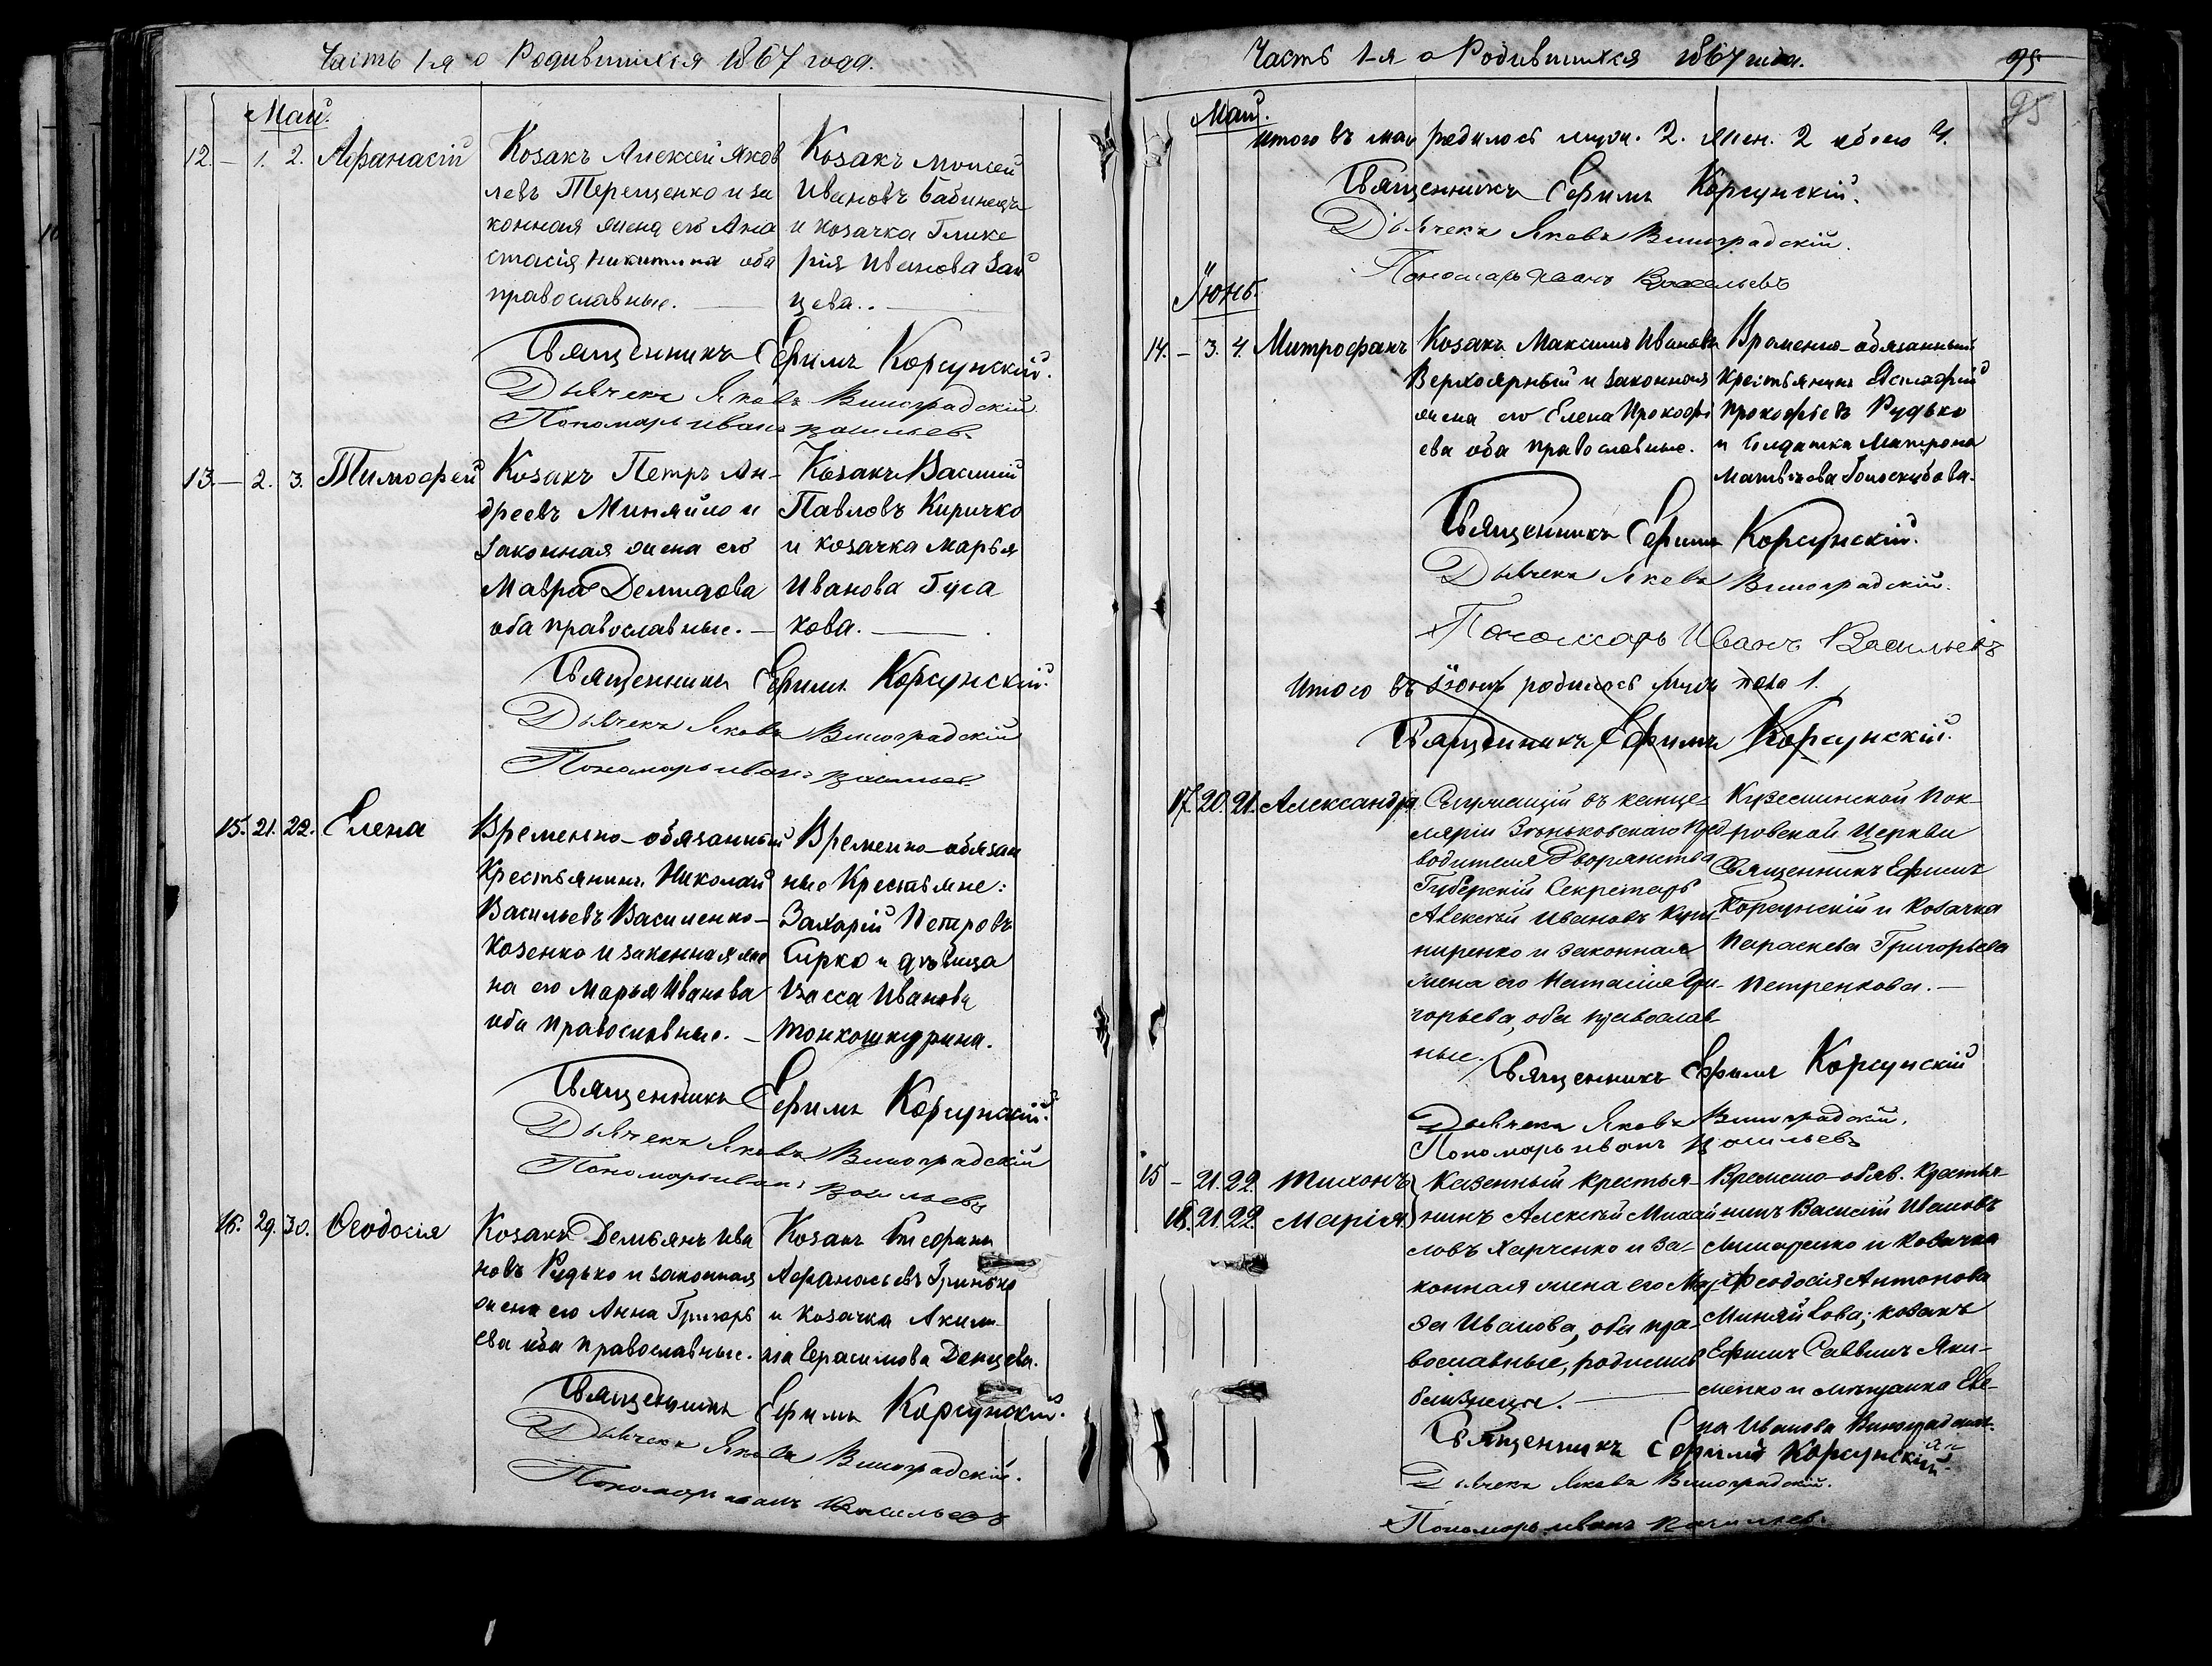 Часть 1-я о Родившихся 1867 года.
Май.
12. — 1. 2. Афанасій
Козакъ Алексей Яков
левъ Терещенко и за
конная жена его Ана
стасія Никитина оба
православные.
Козакъ Моисей
Ивановъ Бабинецъ
и козачка Глике
рія Иванова Зай
цева.
Священникъ Ефимъ Корсунскій.
Дьячекъ Яковъ Виноградскій
Пономарь Иванъ Васильевъ
13. — 2. 3. Тимофей
Козакъ Петръ Ан-
дреевъ Миняйло и
законная жена его
Мавра Демидова
оба православные. —
Козакъ Василий
Павловъ Киричко
и козачка Марья
Иванова Гуса
кова.
Священникъ Ефимъ Корсунскій.
Дьячекъ Яковъ Виноградскій
Пономарь Иванъ Васильевъ
15. 21. 22. Елена
Временно-обязанный
Крестьянинъ Николай
Васильевъ Василенко-
Козенко и законная же
на его Марья Иванова
оба православные. —
Временно-обязан
ные Крестьяне:
Захарій Петровъ
Сирко и дѣвица
Васса Иванова
Тонкошкурина.
Священникъ Ефимъ Корсунскій.
Дьячекъ Яковъ Виноградскій
Пономарь Иванъ Васильевъ
16. 29. 30. Ѳеодосія
Козакъ Демьянъ Ива
новъ Рудько и законная
жена его Анна Григорь
ева оба православные.
Козакъ
Афанасьевъ Гринько
и козачка Акили-
на Герасимова Денцева.
Священникъ Ефимъ Корсунскій.
Дьячекъ Яковъ Виноградскій.
Пономарь Иванъ Васильевъ
Часть 1-я о Родившихся 1867 года.
95
95
Май.
Итого въ маи родилось муж. 2. жен. 2 обоего 4.
Священникъ Ефимъ Корсунскій.
Дьячекъ Яковъ Виноградскій.
Пономарь Иванъ Васильевъ
Іюнь.
14. — 3. 4. Митрофанъ
Козакъ Максимъ Ивановъ
Верхоярный и законная
жена его Елена Прокофі
ева оба православные.
Временно-обязанный
Крестьянинъ
Прокофьевъ Рудько
и Солдатка Матрона
Матвѣева Голоскубова.
Священникъ Ефимъ Корсунскій.
Дьячекъ Яковъ Виноградскій.
Пономарь Иванъ Васильевъ
Итого въ Іюнѣ родилось муж. пола 1.
Священникъ Ефимъ Корсунскій.
17. 20. 21. Александра
Служащій въ канце-
ляріи Зѣньковскаго Пред
водителя Дворянства
Губерскій Секретарь
Алексѣй Ивановъ Куш-
ниренко и законная
жена его Наталія Гри-
горьева, оба православ-
ные.
Куземинской Пок-
ровской Церкви
Священникъ Ефимъ
Корсунскій и Козачка
Параскева Григорьева
Петренкова. —
Священникъ Ефимъ Корсунскій
Дьячекъ Яковъ Виноградскій.
Пономарь Иванъ Васильевъ
15 — 21. 22. Тихонъ
18. 21. 22. Марія
Казенный крестья-
нинъ Алексѣй Михай
ловъ Харченко и за-
конная жена его
Иванова, оба пра-
вославные, родились
близнецы.
Временно-обяз. Крестья-
нинъ Василій Ивановъ
и Козачка
Ѳеодосія Антонова
Миняйлова; козакъ
Ефимъ Саввинъ Яки-
менко и мѣщанка Еле-
на Иванова
Священникъ Ефимъ Корсунскій.
Дьячекъ Яковъ Виноградскій.
Пономарь Иванъ Васильевъ.